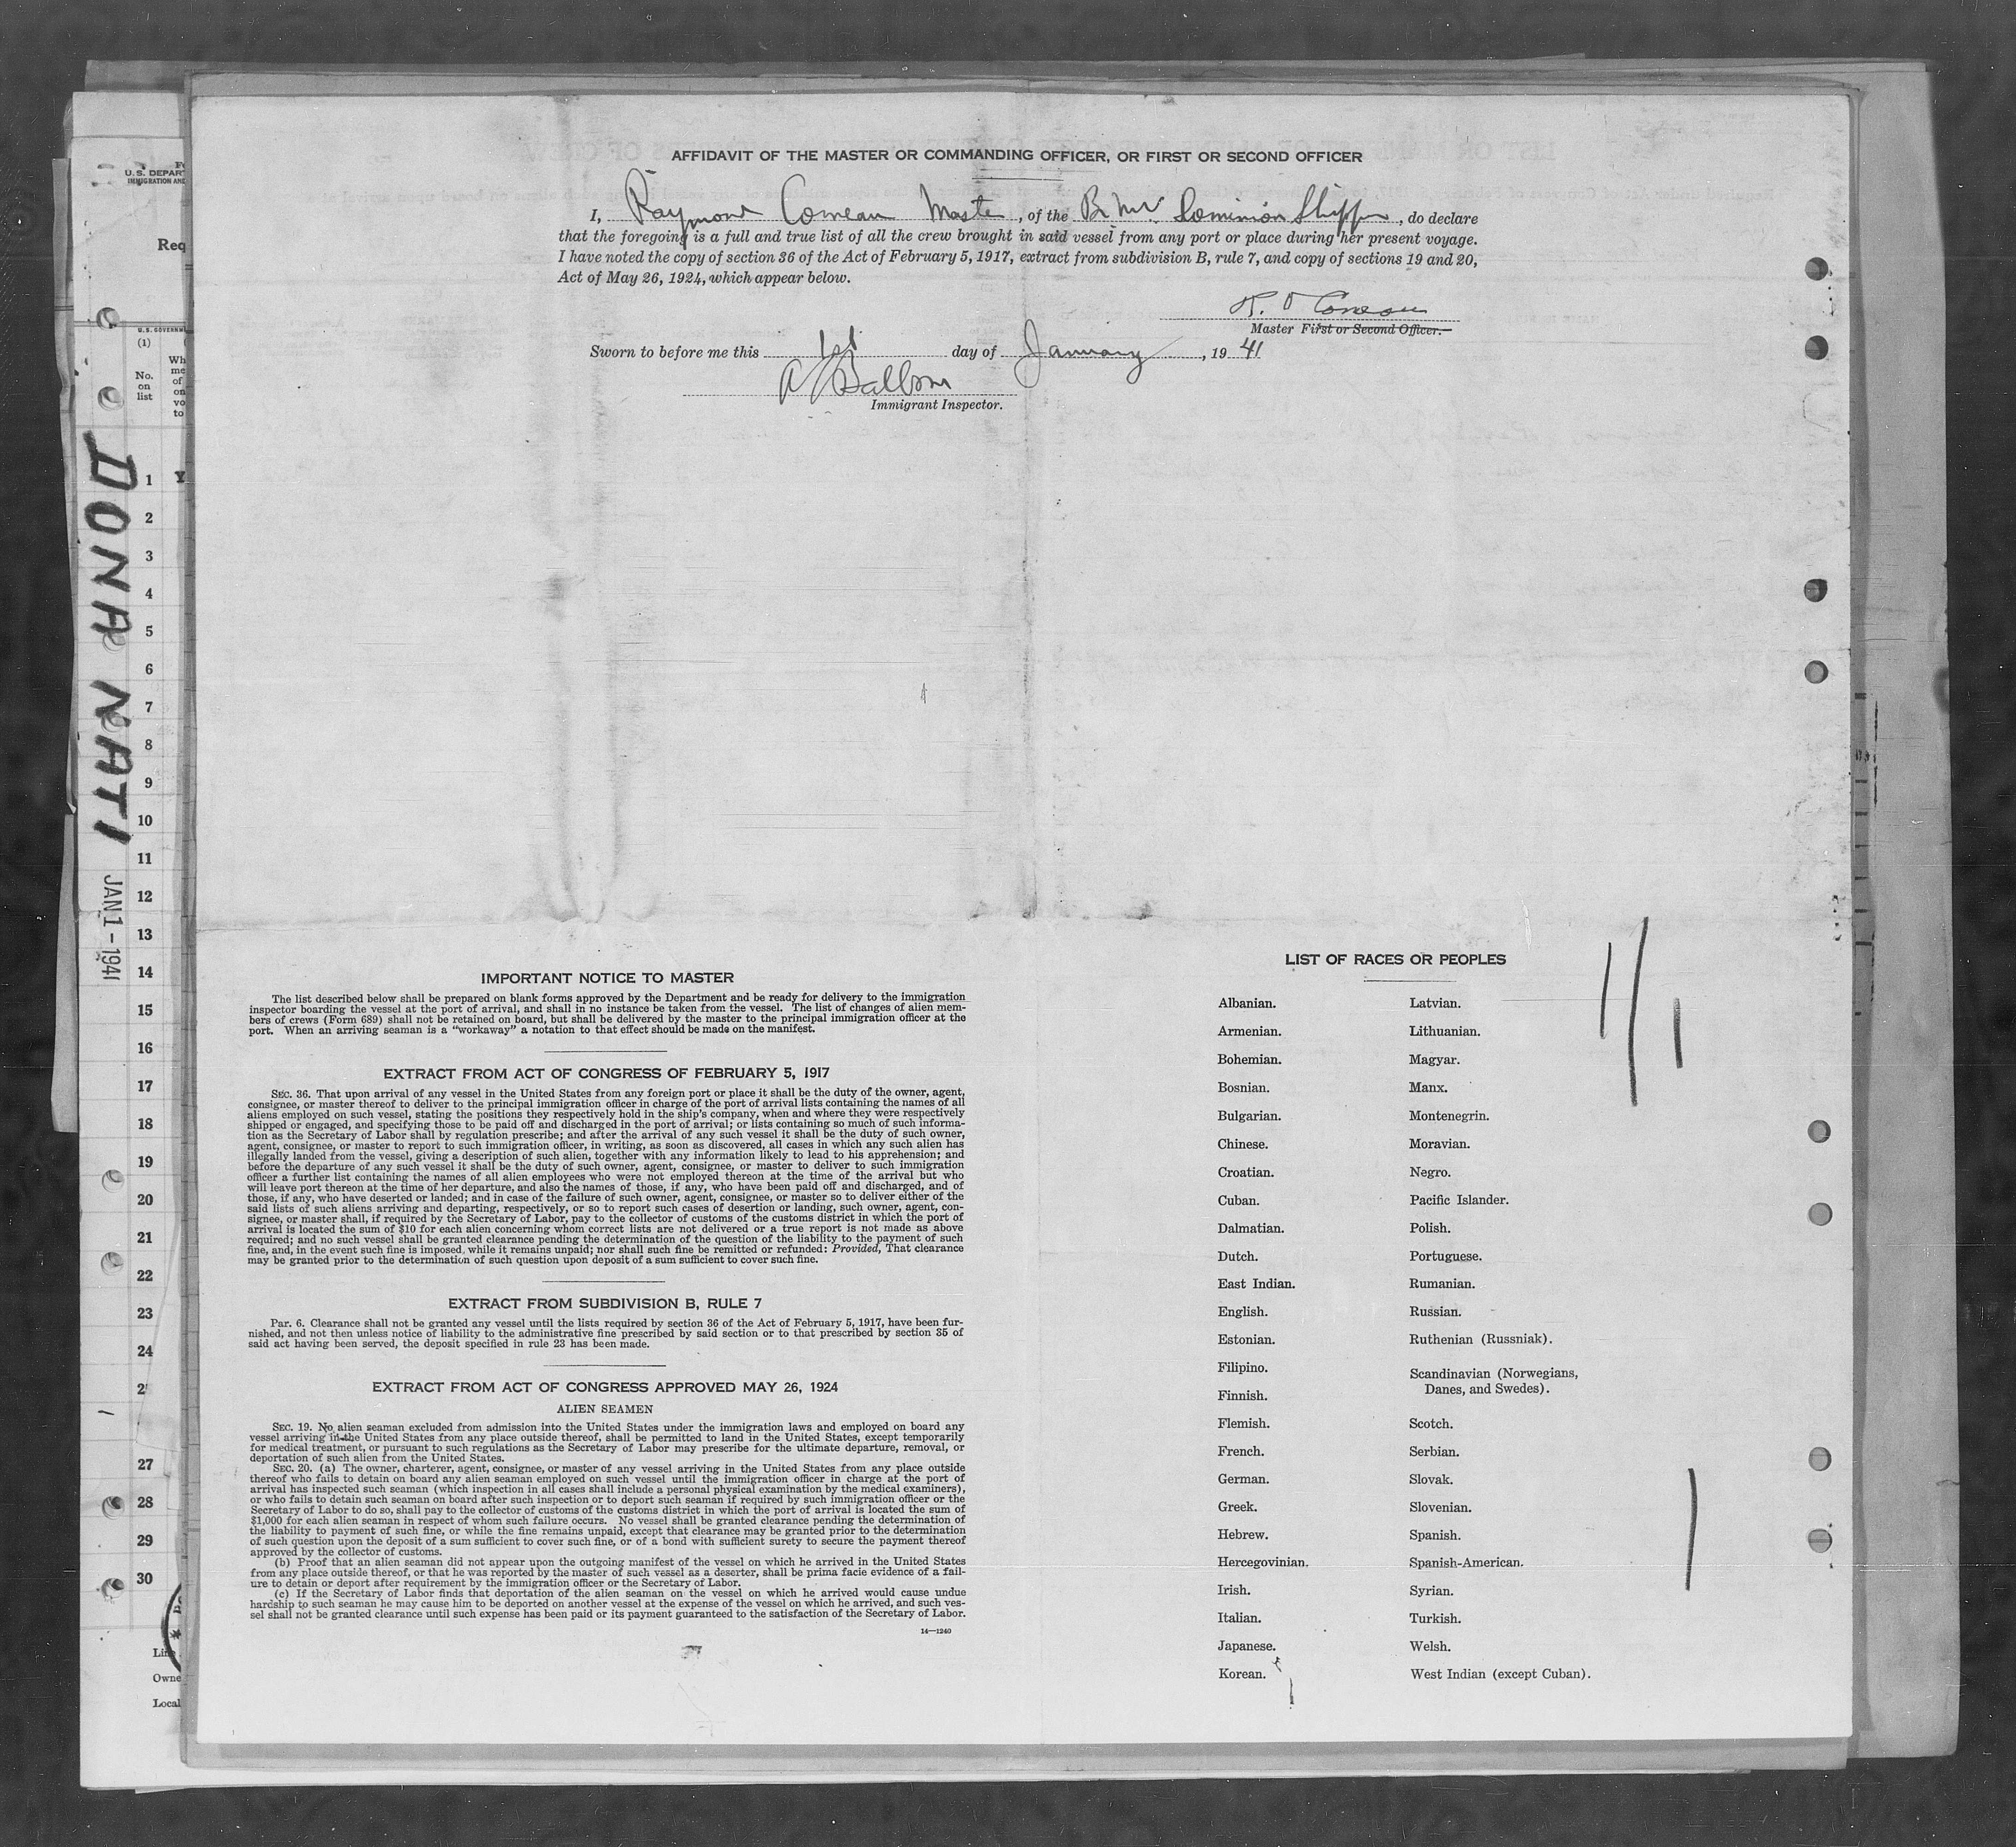 AFFIDAVIT OF THE MASTER OR COMMANDING OFFICER, OR FIRST OR SECOND OFFICER
I, Raymond Comeau Master, of the Br Mv Dominion Shipper, do declare
that the foregoing is a full and true list of all the crew brought in said vessel from any port or place during her present voyage.
I have noted the copy of section 36 of the Act of February 5, 1917, extract from subdivision B, rule 7, and copy of sections 19 and 20,
Act of May 26, 1924, which appear below.
Comeau
Master First or Second Officer.
Sworn to before me this 1st day of January, 1941
Immigrant Inspector.
IMPORTANT NOTICE TO MASTER
The list described below shall be prepared on blank forms approved by the Department and be ready for delivery to the immigration
inspector boarding the vessel at the port of arrival, and shall in no instance be taken from the vessel. The list of changes of alien mem-
bers of crews (Form 689) shall not be retained on board, but shall be delivered by the master to the principal immigration officer at the
port. When an arriving seaman is a "workaway" a notation to that effect should be made on the manifest.
EXTRACT FROM ACT OF CONGRESS OF FEBRUARY 5, 1917
SEC. 36. That upon arrival of any vessel in the United States from any foreign port or place it shall be the duty of the owner, agent,
consignee, or master thereof to deliver to the principal immigration officer in charge of the port of arrival lists containing the names of all
aliens employed on such vessel, stating the positions they respectively hold in the ship's company, when and where they were respectively
shipped or engaged, and specifying those to be paid off and discharged in the port of arrival; or lists containing so much of such informa-
tion as the Secretary of Labor shall by regulation prescribe; and after the arrival of any such vessel it shall be the duty of such owner,
agent, consignee, or master to report to such immigration officer, in writing, as soon as discovered, all cases in which any such alien has
illegally landed from the vessel, giving a description of such alien, together with any information likely to lead to his apprehension; and
before the departure of any such vessel it shall be the duty of such owner, agent, consignee, or master to deliver to such immigration
officer a further list containing the names of all alien employees who were not employed thereon at the time of the arrival but who
will leave port thereon at the time of her departure, and also the names of those, if any, who have been paid off and discharged, and of
those, if any, who have deserted or landed; and in case of the failure of such owner, agent, consignee, or master so to deliver either of the
said lists of such aliens arriving and departing, respectively, or so to report such cases of desertion or landing, such owner, agent, con-
signee, or master shall, if required by the Secretary of Labor, pay to the collector of customs of the customs district in which the port of
arrival is located the sum of $10 for each alien concerning whom correct lists are not delivered or a true report is not made as above
required; and no such vessel shall be granted clearance pending the determination of the question of the liability to the payment of such
fine, and, in the event such fine is imposed, while it remains unpaid; nor shall such fine be remitted or refunded: Provided, That clearance
may be granted prior to the determination of such question upon deposit of a sum sufficient to cover such fine.
EXTRACT FROM SUBDIVISION B, RULE 7
Par. 6. Clearance shall not be granted any vessel until the lists required by section 36 of the Act of February 5, 1917, have been fur-
nished, and not then unless notice of liability to the administrative fine prescribed by said section or to that prescribed by section 35 of
said act having been served, the deposit specified in rule 23 has been made.
EXTRACT FROM ACT OF CONGRESS APPROVED MAY 26, 1924
ALIEN SEAMEN
SEC. 19. No alien seaman excluded from admission into the United States under the immigration laws and employed on board any
vessel arriving in the United States from any place outside thereof, shall be permitted to land in the United States, except temporarily
for medical treatment, or pursuant to such regulations as the Secretary of Labor may prescribe for the ultimate departure, removal, or
deportation of such alien from the United States.
SEC. 20. (a) The owner, charterer, agent, consignee, or master of any vessel arriving in the United States from any place outside
thereof who fails to detain on board any alien seaman employed on such vessel until the immigration officer in charge at the port of
arrival has inspected such seaman (which inspection in all cases shall include a personal physical examination by the medical examiners),
or who fails to detain such seaman on board after such inspection or to deport such seaman if required by such immigration officer or the
Secretary of Labor to do so, shall pay to the collector of customs of the customs district in which the port of arrival is located the sum of
$1,000 for each alien seaman in respect of whom such failure occurs. No vessel shall be granted clearance pending the determination of
the liability to payment of such fine, or while the fine remains unpaid, except that clearance may be granted prior to the determination
of such question upon the deposit of a sum sufficient to cover such fine, or of a bond with sufficient surety to secure the payment thereof
approved by the collector of customs.
(b) Proof that an alien seaman did not appear upon the outgoing manifest of the vessel on which he arrived in the United States
from any place outside thereof, or that he was reported by the master of such vessel as a deserter, shall be prima facie evidence of a fail-
ure to detain or deport after requirement by the immigration officer or the Secretary of Labor.
(c) If the Secretary of Labor finds that deportation of the alien seaman on the vessel on which he arrived would cause undue
hardship to such seaman he may cause him to be deported on another vessel at the expense of the vessel on which he arrived, and such ves-
sel shall not be granted clearance until such expense has been paid or its payment guaranteed to the satisfaction of the Secretary of Labor.
14—1240
LIST OF RACES OR PEOPLES
Albanian.
Armenian.
Bohemian.
Bosnian.
Bulgarian.
Chinese.
Croatian.
Cuban.
Dalmatian.
Dutch.
East Indian.
English.
Estonian.
Filipino.
Finnish.
Flemish.
French.
German.
Greek.
Hebrew.
Hercegovinian.
Irish.
Italian.
Japanese.
Korean.
Latvian.
Lithuanian.
Magyar.
Manx.
Montenegrin.
Moravian.
Negro.
Pacific Islander.
Polish.
Portuguese.
Rumanian.
Russian.
Ruthenian (Russniak).
Scandinavian (Norwegians,
Danes, and Swedes).
Scotch.
Serbian.
Slovak.
Slovenian.
Spanish.
Spanish-American.
Syrian.
Turkish.
Welsh.
West Indian (except Cuban).
DONA NATI
JAN 1 - 1941
(1)
No.
on
list
1
2
3
4
5
6
7
8
9
10
11
12
13
14
15
16
17
18
19
20
21
22
23
24
27
28
29
30